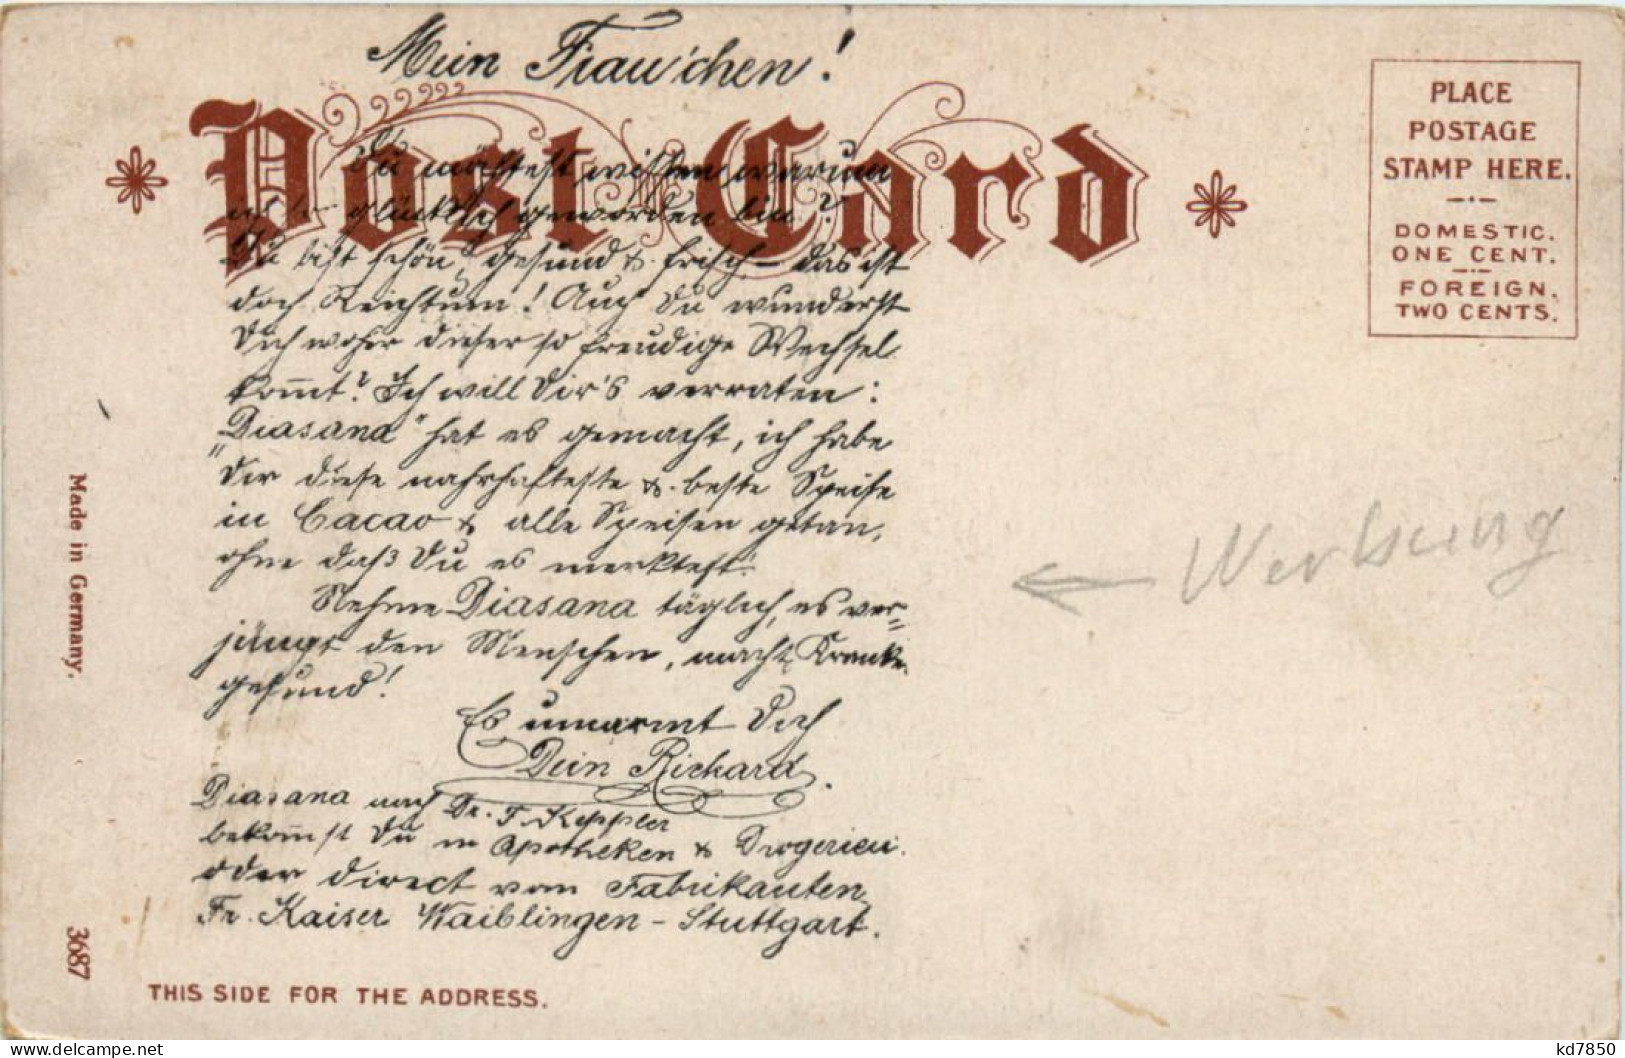 Mein Frau'chen!
Post Card
Du möchtest wissen warum
ich so glücklich geworden bin?
Du bist schön, gesund & frisch – das ist
doch Reichtum! Auch Du wunderst
Dich woher dieser so freudige Wechsel
kom̅t? Ich will Dir's verraten:
„Diasana" hat es gemacht, ich habe
Dir diese nahrhafteste & beste Speise
in Cacao & alle Speisen getan,
ohne daß Du es merktest.
Nehme Diasana täglich, es ver=
jüngt den Menschen, macht Kranke
gesund!
Es umarmt Dich
Dein Richard.
Diasana nach Dr. F. Keppler
bekom̅st Du in Apotheken & Drogerien.
oder direct vom Fabrikanten
Fr. Kaiser Waiblingen – Stuttgart.
PLACE
POSTAGE
STAMP HERE.
DOMESTIC.
ONE CENT.
FOREIGN.
TWO CENTS.
Werbung
Made in Germany.
3687
THIS SIDE FOR THE ADDRESS.
kd7850